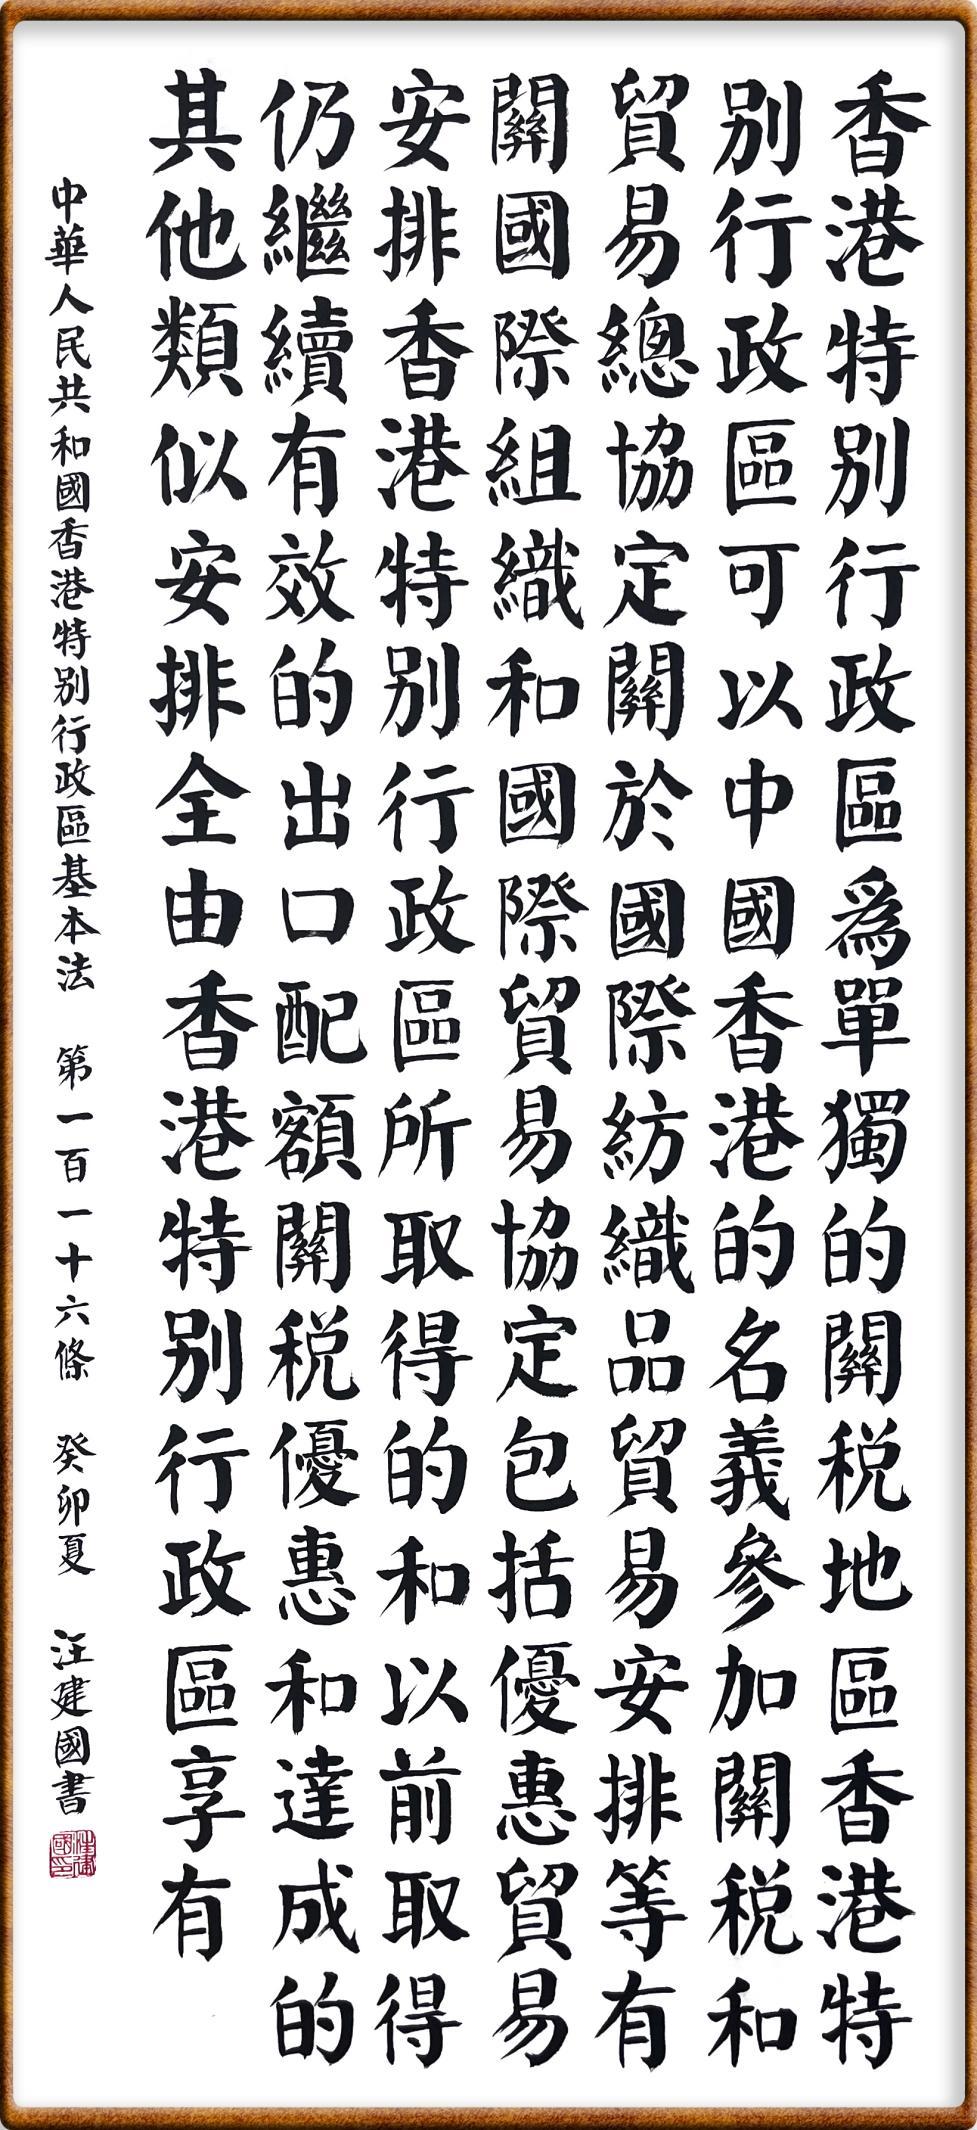 香港特别行政區爲單獨的關税地區香港特
别行政區可以中國香港的名義參加關税和
貿易總協定關於國際紡織品貿易安排等有
關國際組織和國際貿易協定包括優惠貿易
安排香港特别行政區所取得的和以前取得
仍繼續有效的出口配額關税優惠和達成的
其他類似安排全由香港特别行政區享有
中華人民共和國香港特别行政區基本法 第一百一十六條 癸卯夏 汪建國書
汪建國印